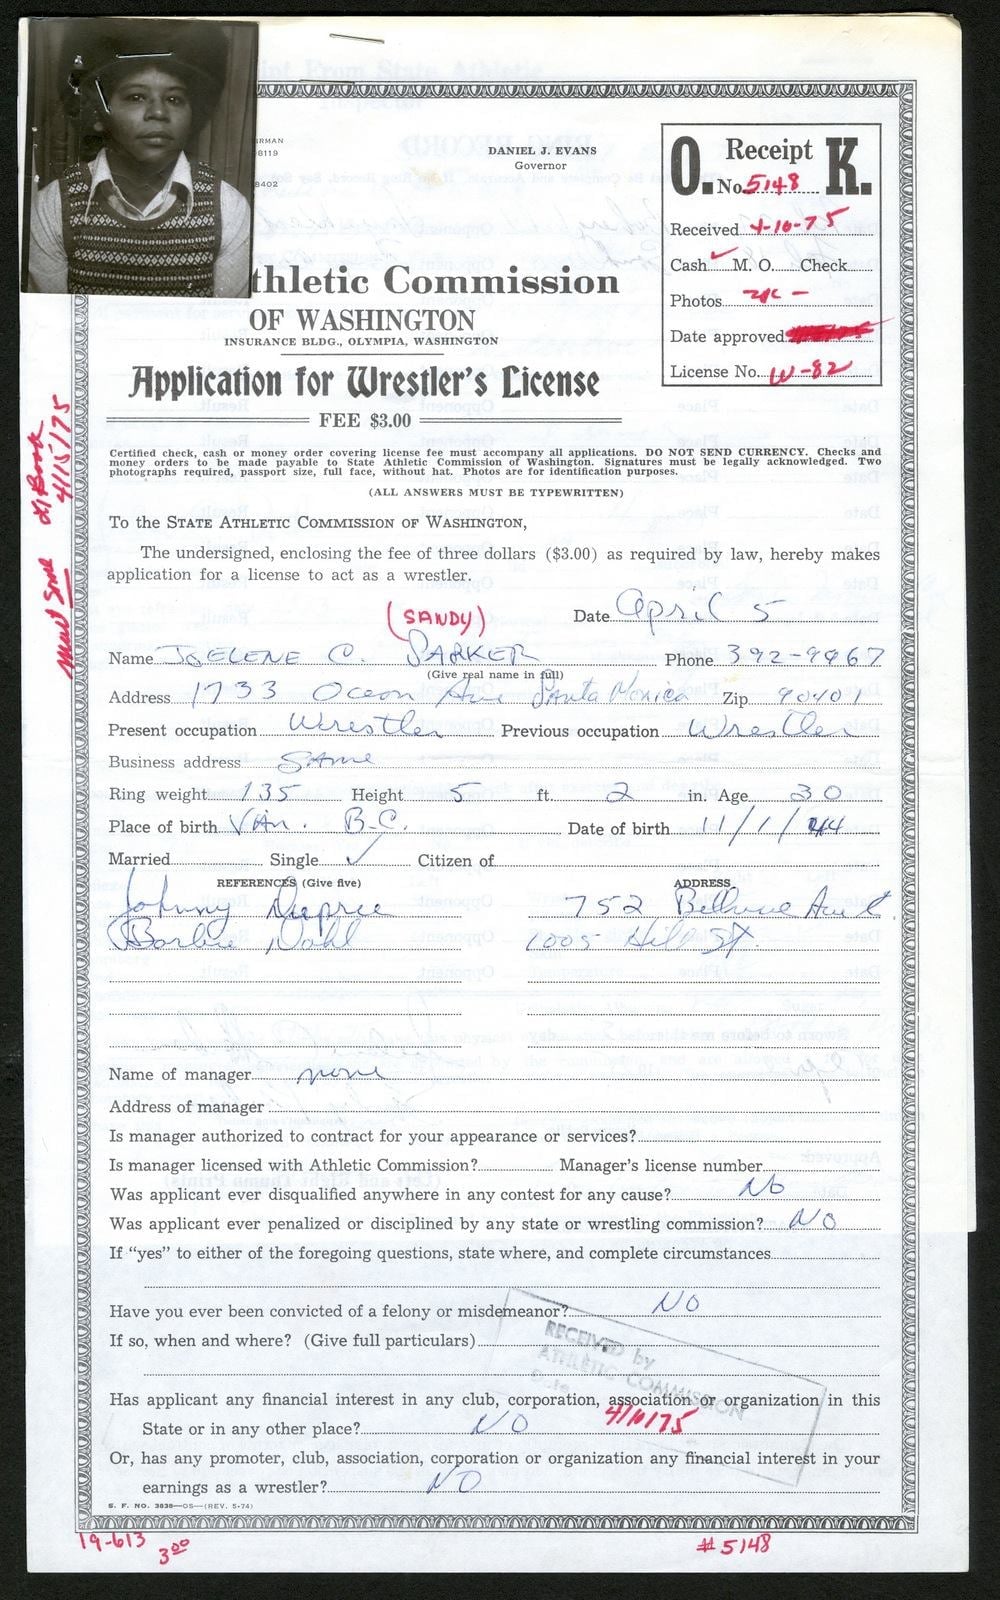 IRMAN
98119
98402
DANIEL J. EVANS
Governor
O. K. Receipt
No. 5148
Received 4-10-75
Cash ✓ M. O. Check
Photos 2
Date approved
License No. W-82
thletic Commission
OF WASHINGTON
INSURANCE BLDG., OLYMPIA, WASHINGTON
Application for Wrestler's License
FEE $3.00
Certified check, cash or money order covering license fee must accompany all applications. DO NOT SEND CURRENCY. Checks and
money orders to be made payable to State Athletic Commission of Washington. Signatures must be legally acknowledged. Two
photographs required, passport size, full face, without hat. Photos are for identification purposes.
(ALL ANSWERS MUST BE TYPEWRITTEN)
4/15/75
To the STATE ATHLETIC COMMISSION OF WASHINGTON,
The undersigned, enclosing the fee of three dollars ($3.00) as required by law, hereby makes
application for a license to act as a wrestler.
(SANDY) Date April 5
Name JOELENE C. PARKER Phone 392-9967
(Give real name in full)
Address 1733 Ocean Ave Santa Monica Zip 90401
Present occupation Wrestler Previous occupation Wrestler
Business address Same
Ring weight 135 Height 5 ft. 2 in. Age 30
Place of birth VAn. B.C. Date of birth 11/1/44
Married Single ✓ Citizen of
REFERENCES (Give five) ADDRESS
Johnny Dupree 752 Bellvue Ave E
Barbie Dahl 1005 Hill St.
Name of manager none
Address of manager
Is manager authorized to contract for your appearance or services?
Is manager licensed with Athletic Commission? Manager's license number
Was applicant ever disqualified anywhere in any contest for any cause? No
Was applicant ever penalized or disciplined by any state or wrestling commission? NO
If "yes" to either of the foregoing questions, state where, and complete circumstances
Have you ever been convicted of a felony or misdemeanor? NO
If so, when and where? (Give full particulars)
RECEIVED by
ATHLETIC COMMISSION
Date
4/10/75
Has applicant any financial interest in any club, corporation, association or organization in this
State or in any other place? NO
Or, has any promoter, club, association, corporation or organization any financial interest in your
earnings as a wrestler? NO
S. F. NO. 3838—OS—(REV. 5-74)
19-613
3.00
#5148